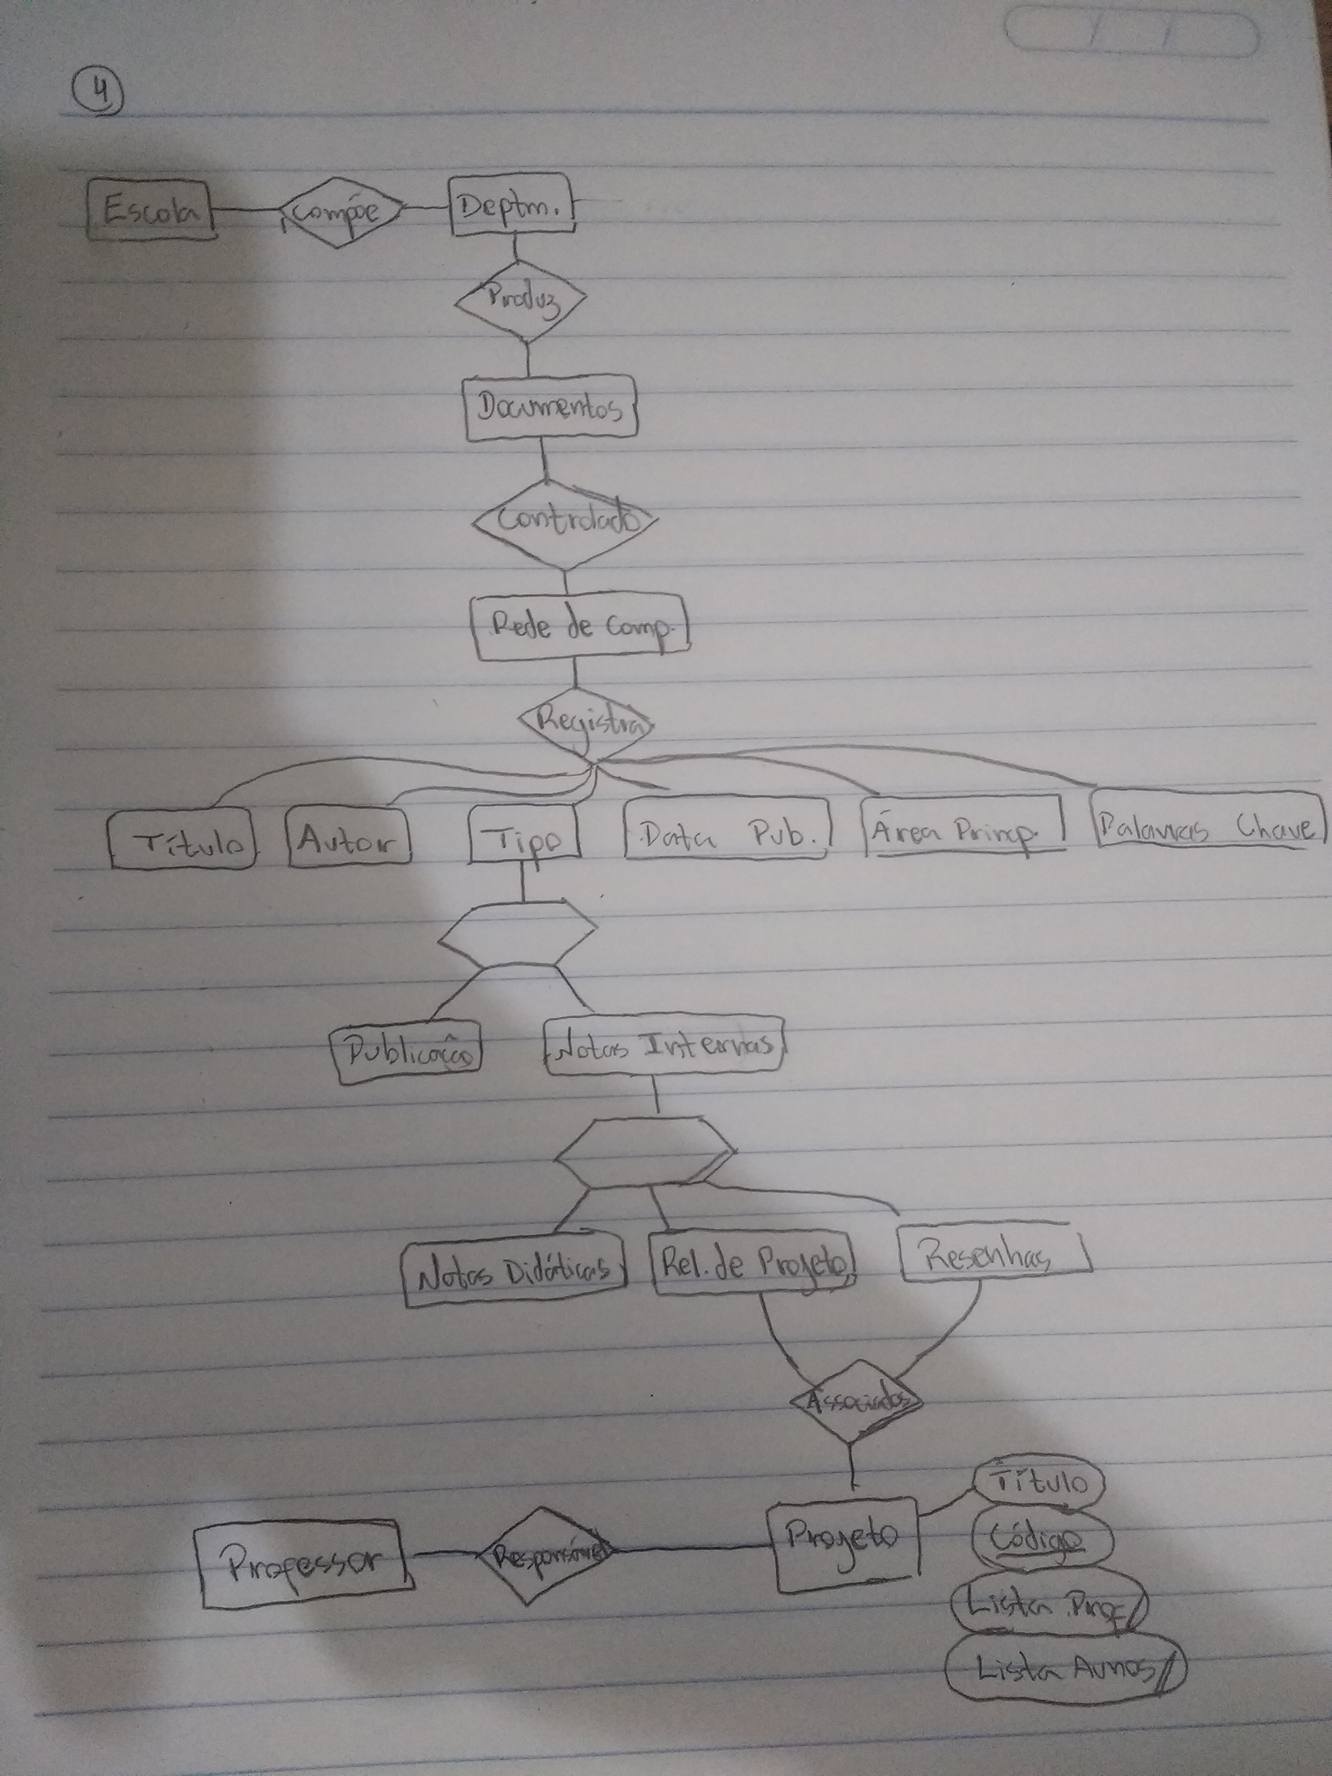 4
Escola Compõe Deptm.
Produz
Documentos
Controlado
Rede de Comp.
Registra
Título Autor Tipo Data Pub. Área Princp. Palavras Chave
Publicação Notas Internas
Notas Didáticas Rel. de Projeto Resenhas
Associados
Título
Professor Responsável Projeto Código
Lista Prof
Lista Aunos